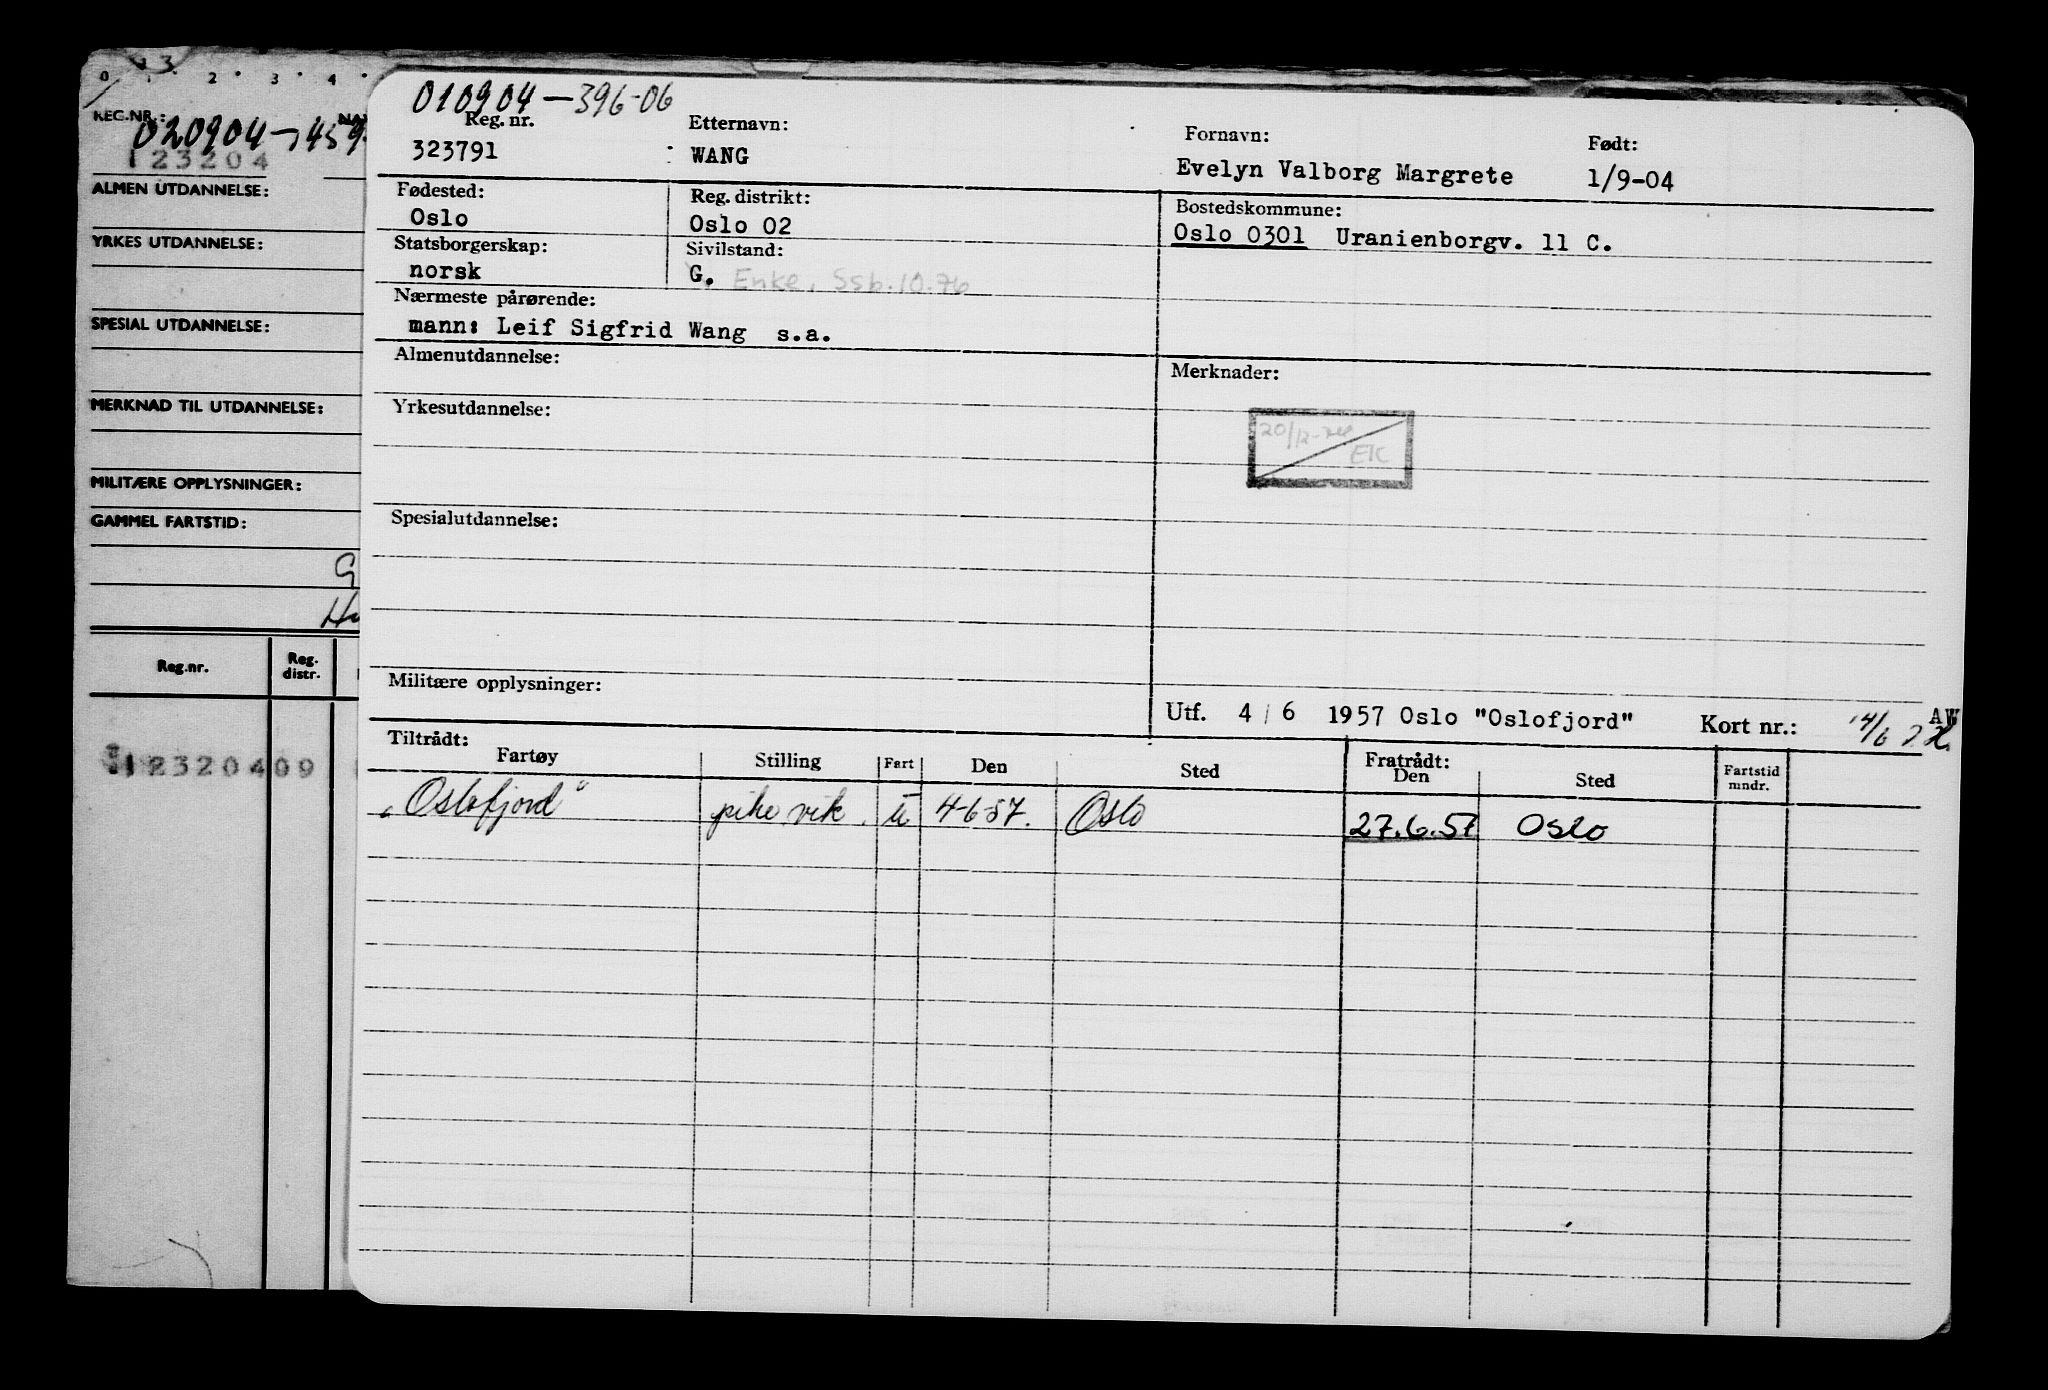 0 1 2 3 4
REG.NR.:
020904-459
123204
ALMEN UTDANNELSE:
YRKES UTDANNELSE:
SPESIAL UTDANNELSE:
MERKNAD TIL UTDANNELSE:
MILITÆRE OPPLYSNINGER:
GAMMEL FARTSTID:
Reg.nr. Reg. distr.
12320409
010904-396-06
Reg. nr. Etternavn: Fornavn: Født:
323791 WANG Evelyn Valborg Margrete 1/9-04
Fødested: Reg. distrikt: Bostedskommune:
Oslo Oslo 02 Oslo 0301 Uranienborgv. 11 C.
Statsborgerskap: Sivilstand:
norsk G. Enke. Ssb.10.76
Nærmeste pårørende:
mann: Leif Sigfrid Wang s.a.
Almenutdannelse: Merknader:
Yrkesutdannelse:
20/12-74
EK
Spesialutdannelse:
Militære opplysninger:
Utf. 4/6 1957 Oslo "Oslofjord" Kort nr.: AW
Tiltrådt: Fratrådt:
Fartøy Stilling Fart Den Sted Den Sted Fartstid mndr.
"Oslofjord" pike vik. u 4-6-57. Oslo 27.6.57 Oslo